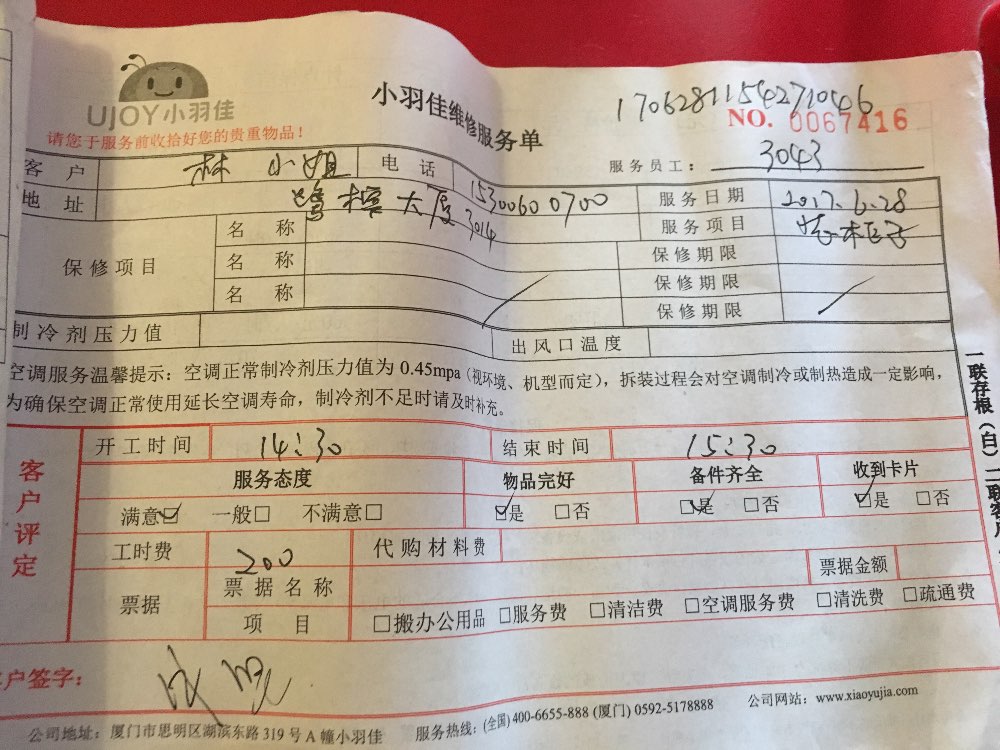 UJOY小羽佳
小羽佳维修服务单
1706281154271046
NO. 0067416
请您于服务前收拾好您的贵重物品！
服务员工： 3043
客 户 林小姐 电 话 15300600700
地 址 大厦3014 服务日期 2017.6.28
保修项目 名 称 服务项目
名 称 保修期限
名 称 保修期限
保修期限
制冷剂压力值 出风口温度
空调服务温馨提示：空调正常制冷剂压力值为 0.45mpa（视环境、机型而定），拆装过程会对空调制冷或制热造成一定影响，
为确保空调正常使用延长空调寿命，制冷剂不足时请及时补充。
一联存根（白）二联客户
客户评定
开工时间 14:30 结束时间 15:30
服务态度 物品完好 备件齐全 收到卡片
满意☑ 一般□ 不满意□ ☑是 □否 ☑是 □否 ☑是 □否
工时费 200 代购材料费
票据 票据名称 票据金额
项 目 □搬办公用品 □服务费 □清洁费 □空调服务费 □清洗费 □疏通费
客户签字：
公司地址：厦门市思明区湖滨东路 319 号 A 幢小羽佳 服务热线：(全国) 400-6655-888 (厦门) 0592-5178888 公司网站：www.xiaoyujia.com